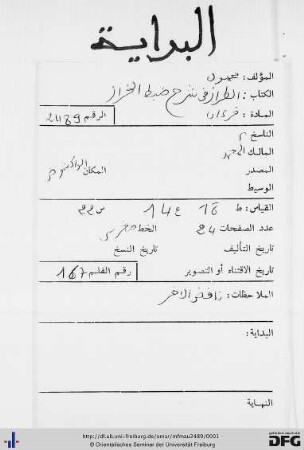 البداية
المؤلف: مجهول
الكتاب: الطراز في شرح ضبط الخراز
المادة: قرءان الرقم 2489
الناسخ
المالك
المصدر المكان
الوسيط
القياس: ط 16 ع 14 س
عدد الصفحات 24 الخط مغربي
تاريخ التأليف تاريخ النسخ
تاريخ الاقتناء أو التصوير رقم الفلم 167
الملاحظات: ناقص الاخر
البداية:
النهاية
http://dl.ub.uni-freiburg.de/omar/mfmau2489/0001
© Orientalisches Seminar der Universität Freiburg
DFG